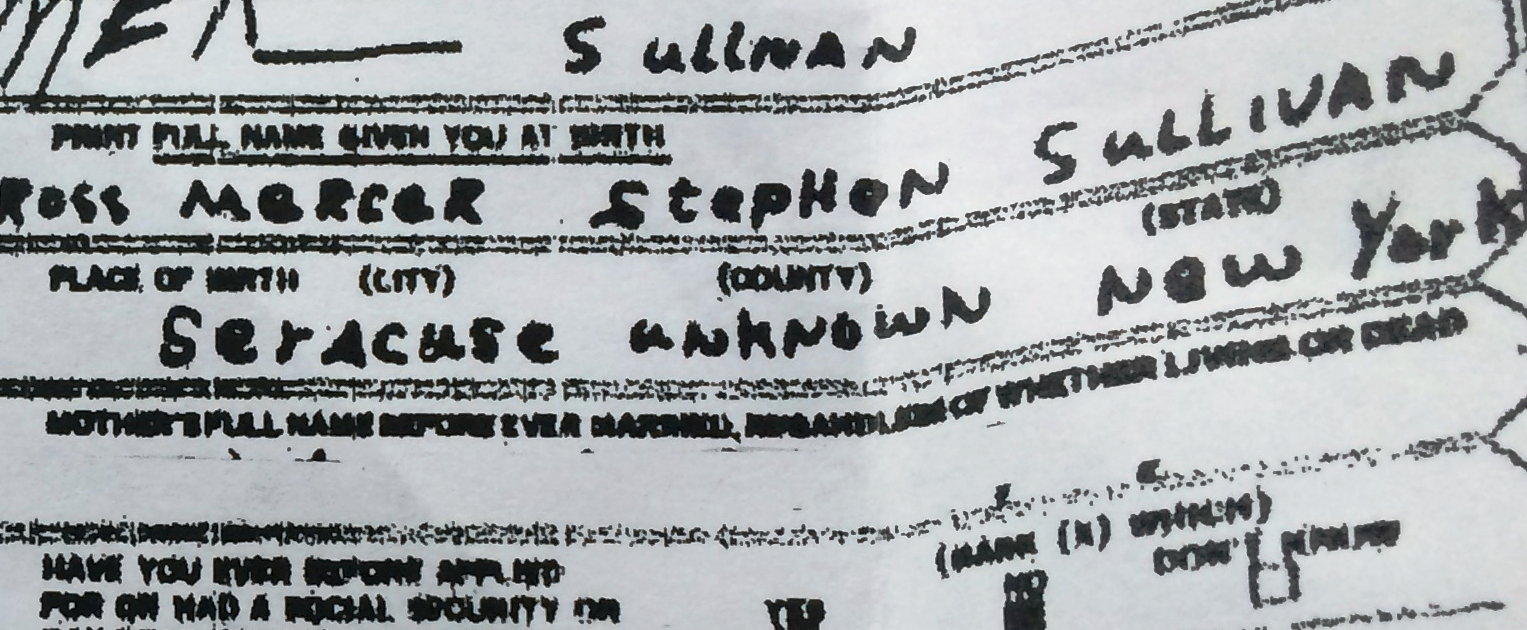 MER Sullivan
PRINT FULL NAME GIVEN YOU AT BIRTH
Ross MeRceR StepHeN SuLLIVAN
PLACE OF BIRTH (CITY) (COUNTY) (STATE)
SerAcuse unknowN New York
MOTHER'S FULL NAME BEFORE EVER MARRIED, REGARDLESS OF WHETHER LIVING OR DEAD
HAVE YOU EVER BEFORE APPLIED (MARK (X) WHICH)
FOR OR HAD A SOCIAL SECURITY OR YES NO DON'T KNOW